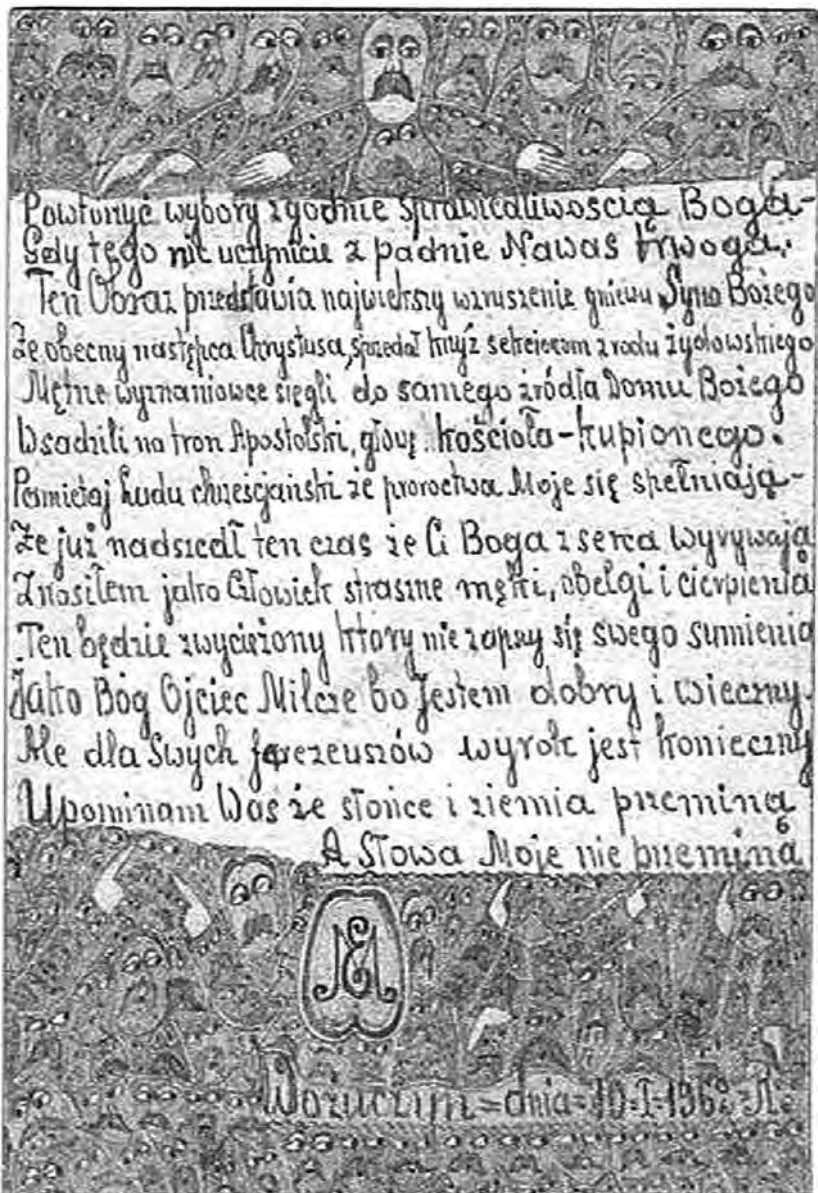 Powturzyć wybory zgodnie sprawiedliwością Boga-
Gdy tego nie uczynicie z padnie Nawas trwoga.
Ten Obraz przedstawia najwiekszy wzruszenie gniewu Syna Bożego
Że obecny następca Chrystusa, sprzedał krzyż z rodu żydowskiego
Mętne wyznaniowce sięgli do samego źródła Domu Bożego
Wsadzili na tron Apostolski, głowę kościoła-kupionego.
Pamietaj Ludu chrześcjański że proroctwa Moje się spełniają-
Że już nadszedł ten czas że Ci Boga z serca wyrywają
Znosiłem jako Człowiek straszne męki, obelgi i cierpienia
Ten będzie zwyciężony który nie zaprzy się swego sumienia
Jako Bóg Ojciec Milcze bo Jestem dobry i wieczny.
Ale dla Swych farezeuszów wyrok jest konieczny
Upominam Was że słońce i ziemia przeminą
A Słowa Moje nie przeminą
Wożuczyn=dnia=10=I=196